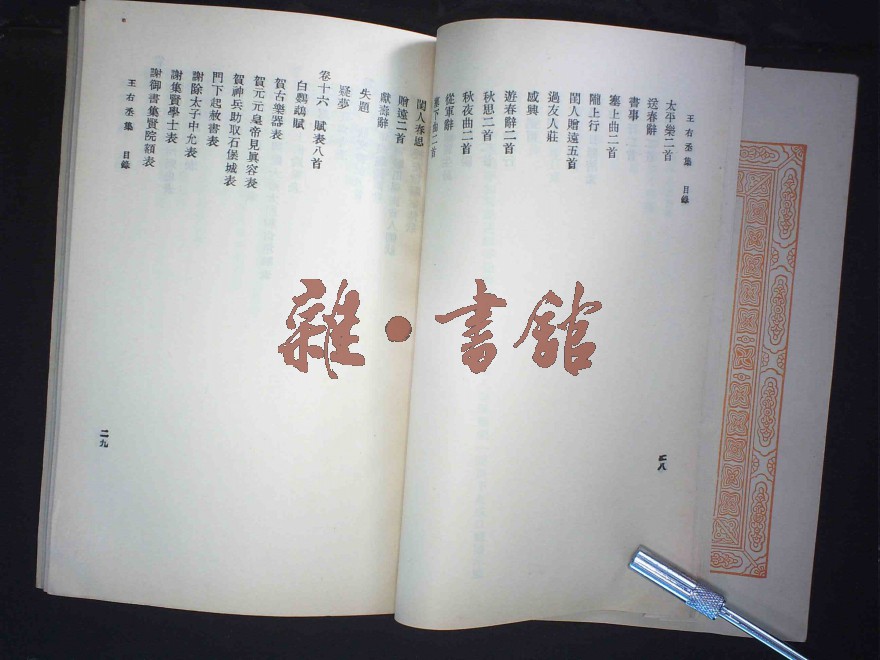 王右丞集　目錄
太平樂二首
送春辭
書事
塞上曲二首
隴上行
閨人贈遠五首
過友人莊
感興
遊春辭二首
秋思二首
秋夜曲二首
從軍辭
塞下曲二首
二八
閨人春思
贈遠二首
獻壽辭
失題
疑夢
卷十六　賦表八首
白鸚鵡賦
賀古樂器表
賀元元皇帝見眞容表
賀神兵助取石堡城表
門下起赦書表
謝除太子中允表
謝集賢學士表
謝御書集賢院額表
王右丞集　目錄
二九
雜・書館